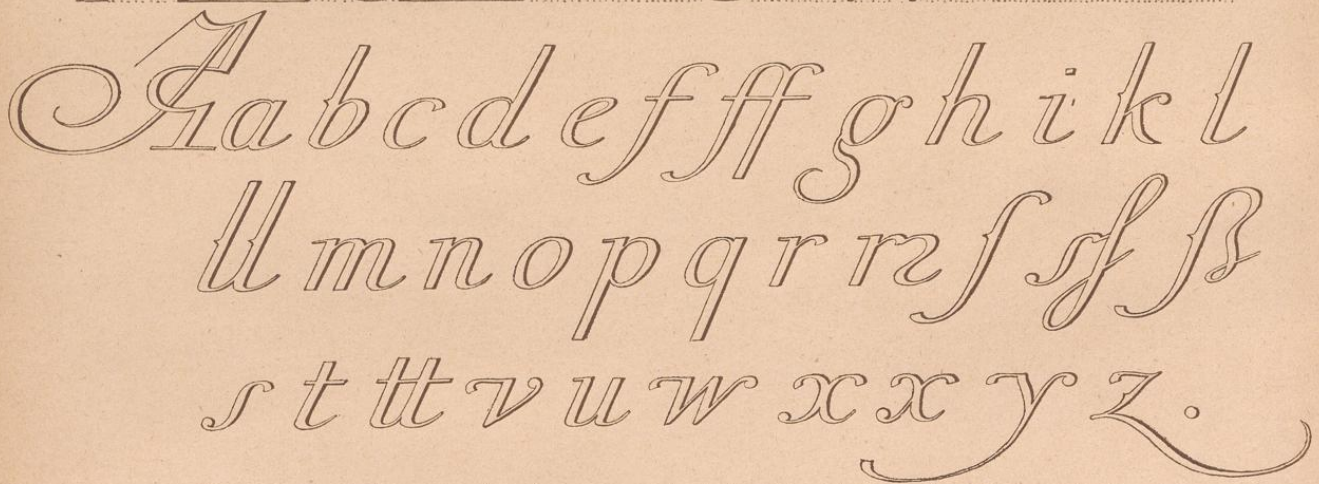 Aabcdefffghikl
llmnopqrrꝛſsſß
sttt v u w x x y z.